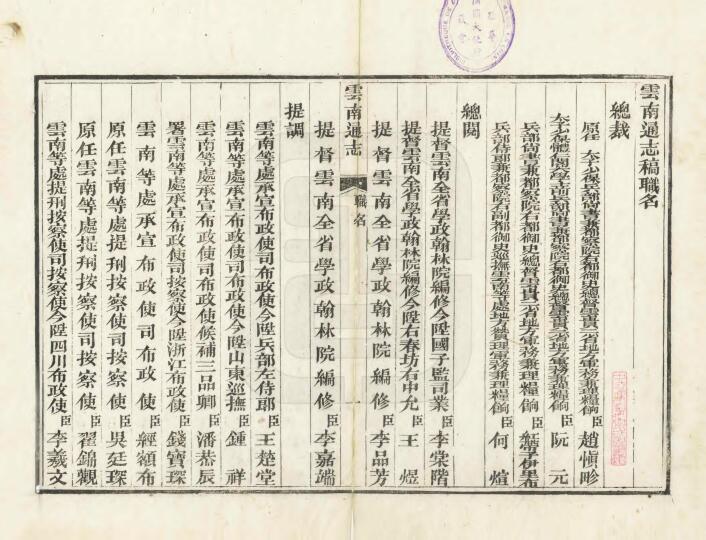 雲南通志稿職名
總裁
原任太子少保兵部尚書兼都察院右都御史總督雲貴二省地方軍務兼理糧餉臣趙慎畛
太子少保體仁閣大學士前兵部尚書兼都察院右都御史總督雲貴二省地方軍務兼理糧餉臣阮元
兵部尚書兼都察院右都御史總督雲貴二省地方軍務兼理糧餉臣伊里布
兵部侍郎兼都察院右副都御史巡撫雲南等處地方贊理軍務兼理糧餉臣何煊
總閱
提督雲南全省學政翰林院編修今陞國子監司業臣李棠階
提督雲南全省學政翰林院編修今陞右春坊右中允臣王煜
提督雲南全省學政翰林院編修臣李品芳
雲南通志
職名
提督雲南全省學政翰林院編修臣李嘉端
提調
雲南等處承宣布政使司布政使今陞兵部左侍郎臣王楚堂
雲南等處承宣布政使司布政使今陞山東巡撫臣鍾祥
雲南等處承宣布政使司布政使候補三品卿臣潘恭辰
署雲南等處承宣布政使司按察使今陞浙江布政使臣錢寶琛
雲南等處承宣布政使司布政使臣經額布
原任雲南等處提刑按察使司按察使臣吳廷琛
原任雲南等處提刑按察使司按察使臣翟錦觀
雲南等處提刑按察使司按察使今陞四川布政使臣李羲文